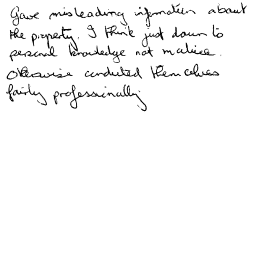 Gave misleading information about
the property. I think just down to
personal knowledge not malice.
Otherwise conducted themselves
fairly professionally